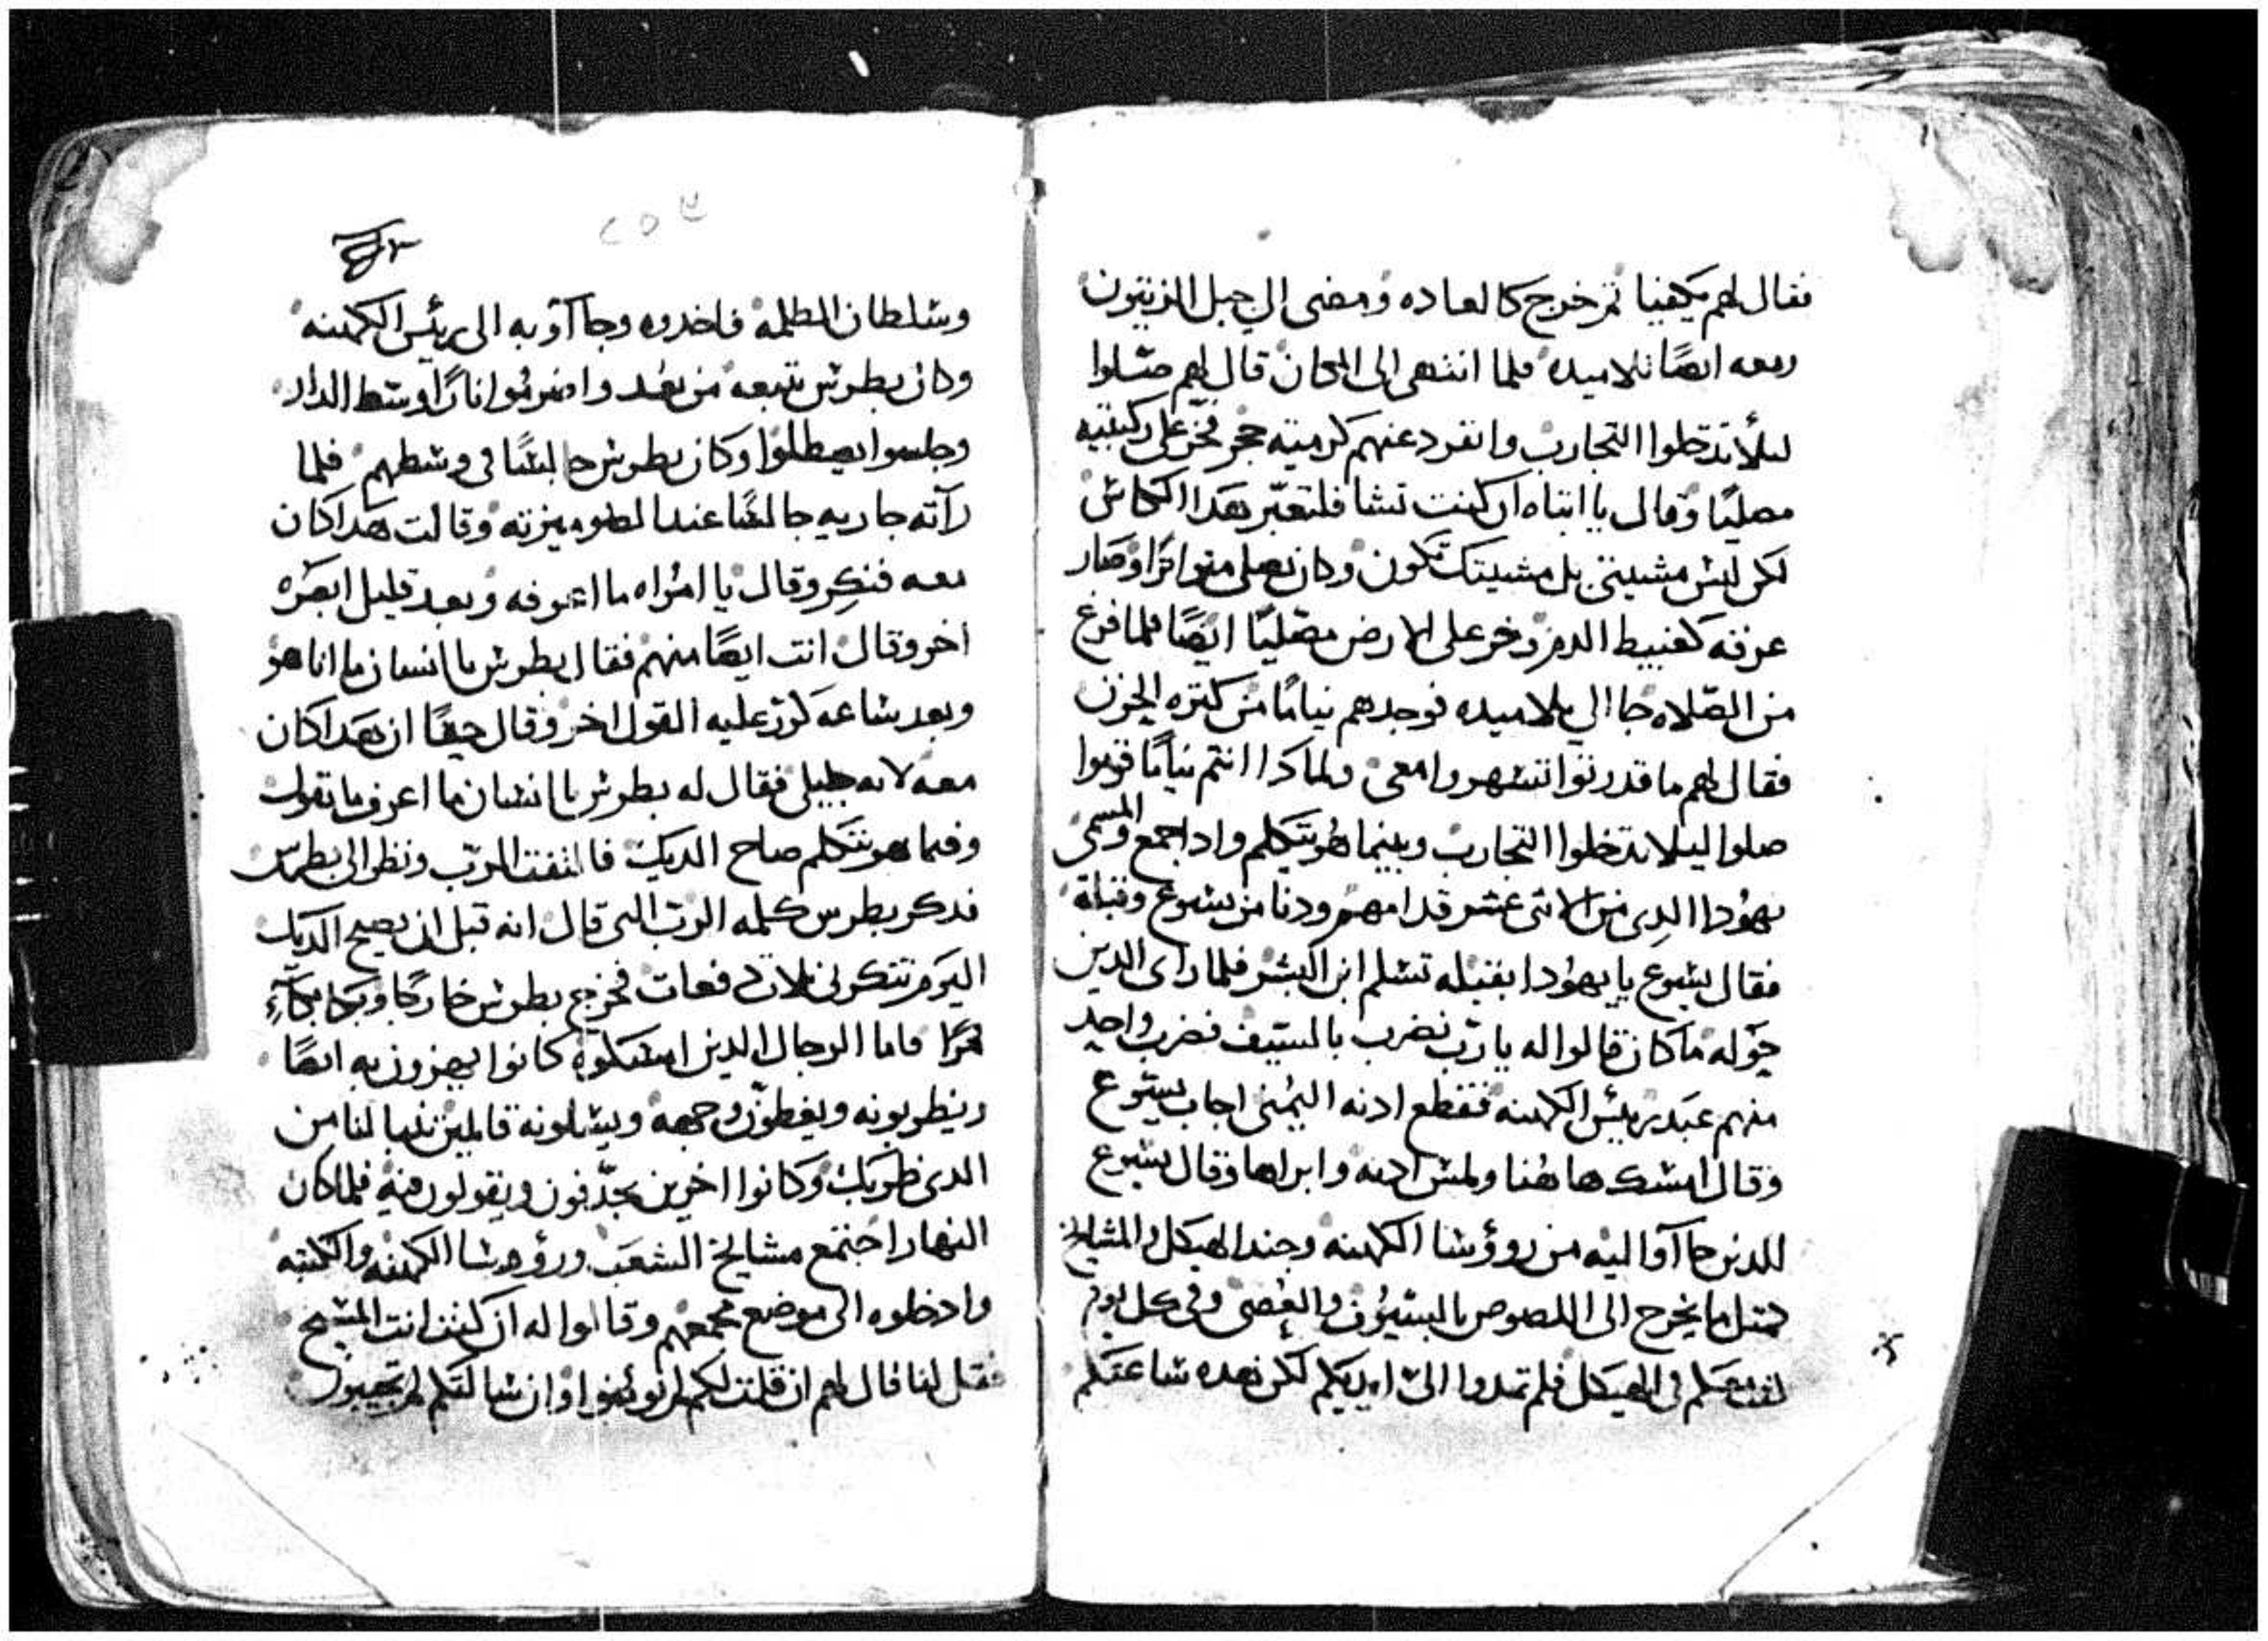 فقال لهم يكفينا ثم خرج كالعاده ومضى الي جبل الزيتون
ومعه ايضًا تلاميده فلما انتهى الى المكان قال لهم صلوا
ليلأ تدخلوا التجارب وانفرد عنهم كرميته حجر فخر على ركبتيه
مصليًا وقال يا ابتاه ان كنت تشا فلتعبّر هدا الكاس
لكن ليس مشيتى بل مشيتك تكون وكان يصلى متواترًا وصار
عرقه كعبيط الدم وخر على الارض مصليًا ايضًا فلما فرغ
من الصّلاه جا الي تلاميده فوجدهم نيامًا من كثره الحزن
فقال لهم ما قدرتوا تسهروا معى ولمادا انتم نيامًا قوموا
صلوا ليلا تدخلوا التجارب وبينما هو يتكلم وادا جمع والمسمى
يهودا الدى من الاثنى عشر قدامهم ودنا من يسوع وقبله
فقال يسوع يا يهودا بقبله تسلم ابن البشر فلما راى الدين
حوله ما كان قالوا له يا رب نضرب بالسيف فضرب واحد
منهم عبد رييس الكهنه فقطع ادنه اليمنى اجاب يسوع
وقال امسك هاهنا ولمس ادنه وابراها وقال يسوع
للدين جاآوا اليه من روؤسا الكهنه وجند الهيكل والمشايخ
كمتل ما يخرج الى اللصوص بالسيوف والعصى وفى كل يوم
كنت معكم فى الهيكل فلم تمدوا الىّ ايديكم لكن هده ساعتكم
٢٥٤
وسلطان الظلمه فاخدوه وجاآو به الى رئيس الكهنه
وكان بطرس يتبعه من بعد واضرموا نارًا وسط الدار
وجلسوا يصطلوا وكان بطرس جالسًا فى وسطهم فلما
رآته جاريه جالسًا عند الضو ميزته وقالت هدا كان
معه فنكر وقال يا امراه ما اعرفه وبعد قليل ابصره
اخر وقال انت ايضًا منهم فقال بطرس يا انسان ما انا هو
وبعد ساعه كرر عليه القول اخر وقال حقًا ان هدا كان
معه لانه جليلى فقال له بطرس يا انسان ما اعرف ما تقول
وفيما هو يتكلم صاح الديك فالتفت الرّب ونظر الى بطرس
فدكر بطرس كلمه الرب التى قال انه قبل ان يصيح الديك
اليوم تنكرنى ثلاث دفعات فخرج بطرس خارجًا وبكا بكآءِ
مرًا فاما الرجال الدين امسكوه كانوا يهزون به ايضًا
ويضربونه ويغطون وجهه ويسلونه قايلين تنبا لنا من
الدى ضربك وكانوا اخرين يجدّفون ويقولون فيه فلما كان
النهار اجتمع مشايخ الشعب وروؤسا الكهنه والكتبه
وادخلوه الى موضع مجمعهم وقالوا له ان كنت انت المسيح
فقل لنا قال لهم ان قلت لكم لم تومنوا وان سالتكم لم تجيبون